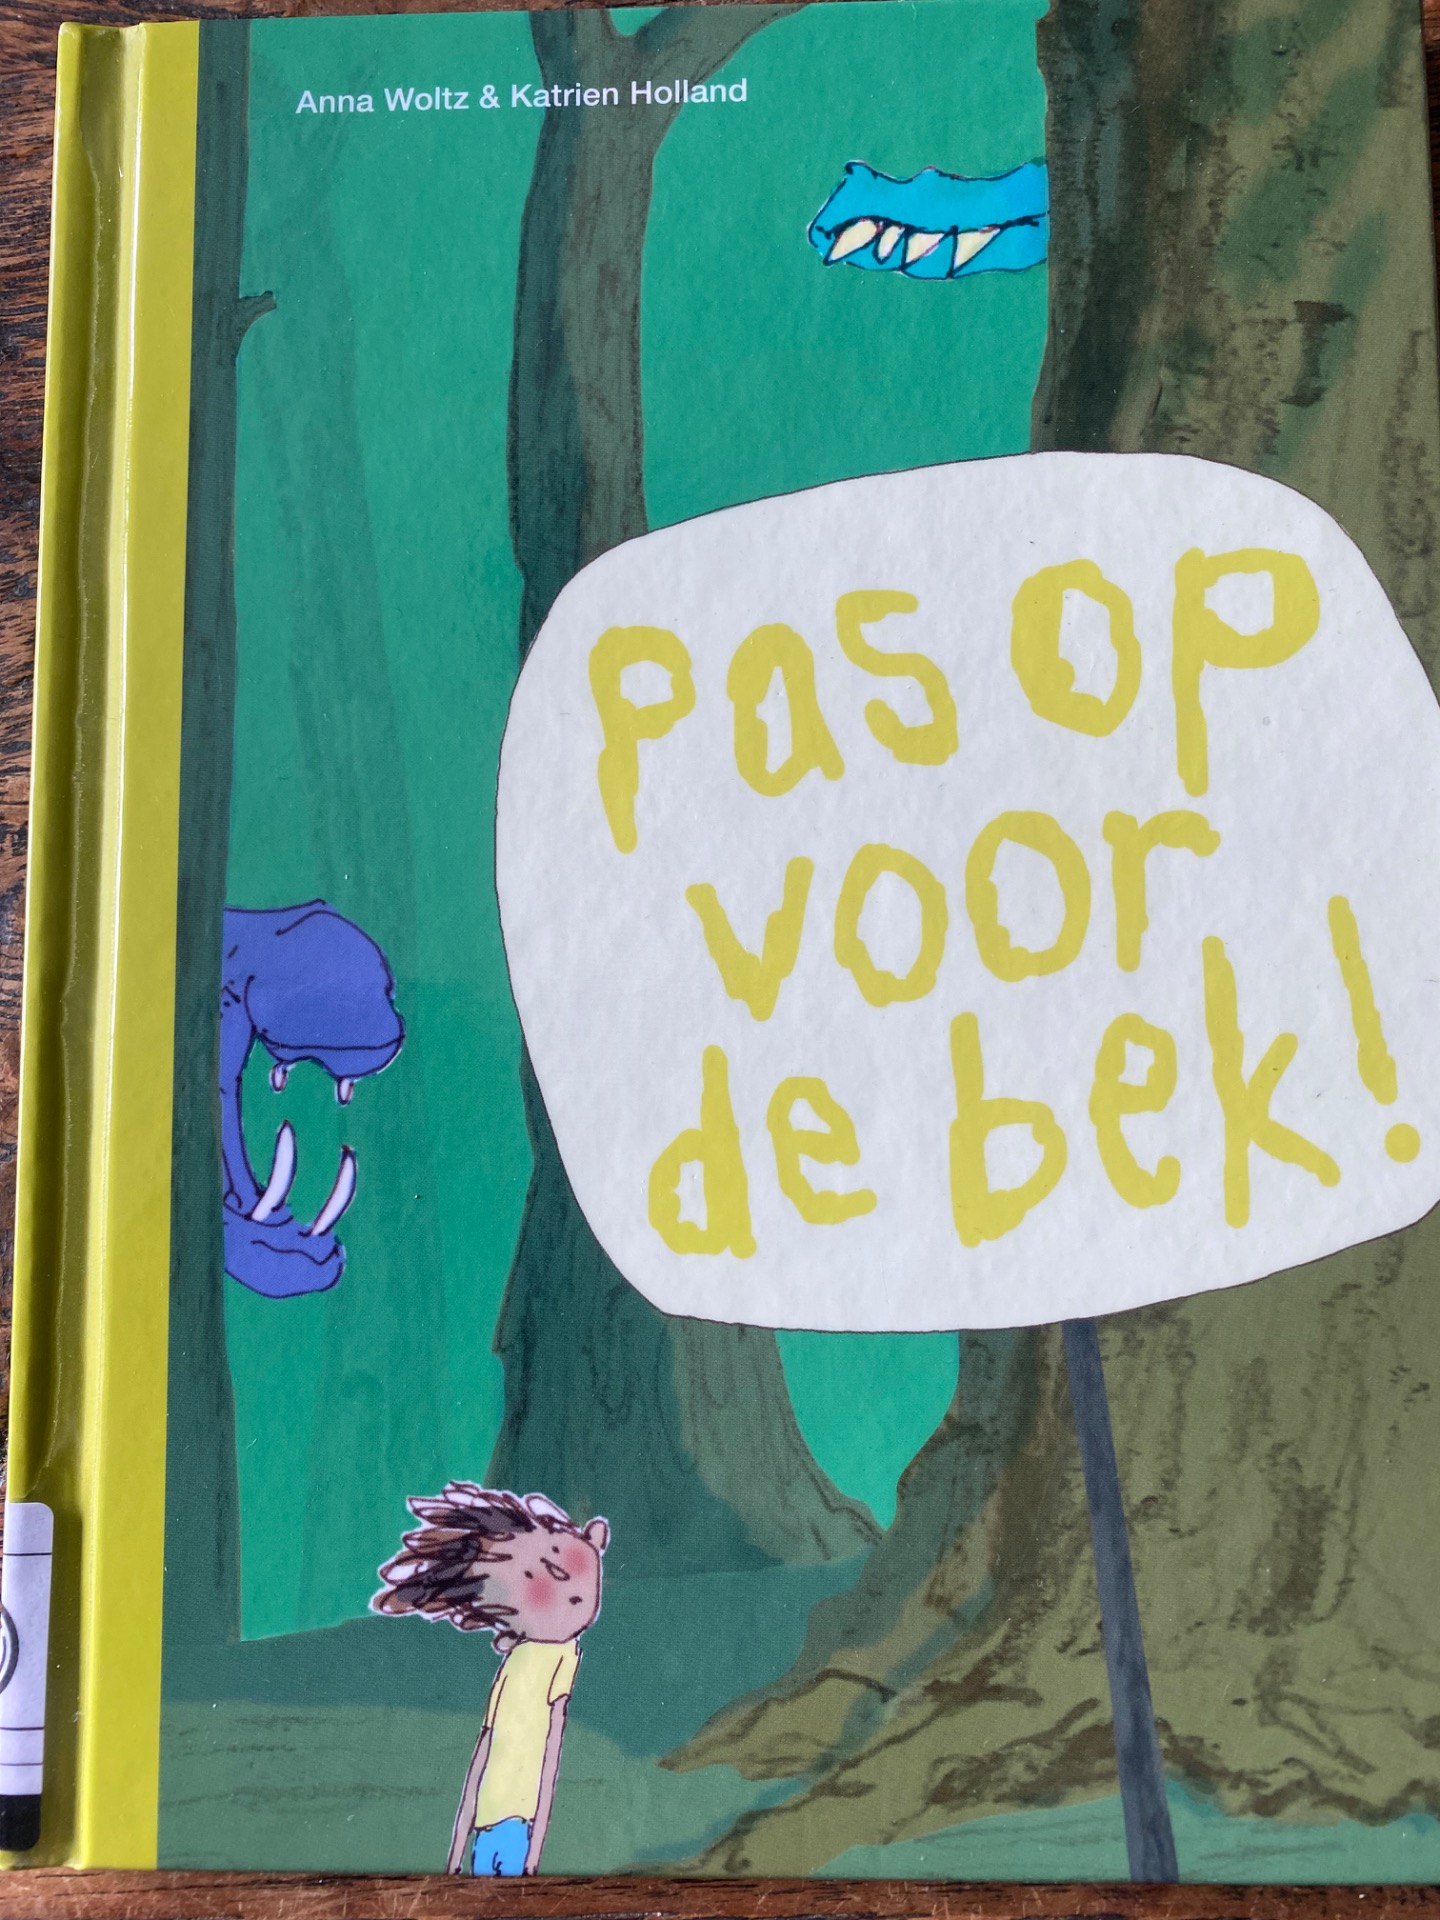 Anna Woltz & Katrien Holland
pas op
voor
de bek!